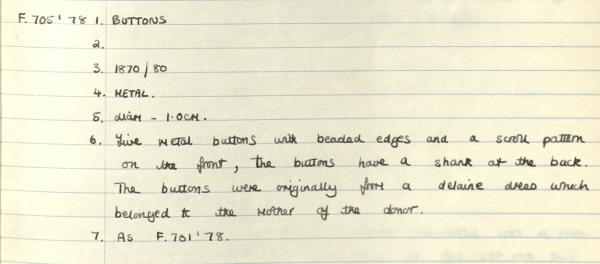 F.705'78 1. BUTTONS
2.
3. 1870/80
4. METAL.
5. diam - 1.0cm.
6. Five metal buttons with beaded edges and a scroll pattern
on the front, the buttons have a shank at the back.
The buttons were originally from a delaine dress which
belonged to the mother of the donor.
7. As F.701'78.